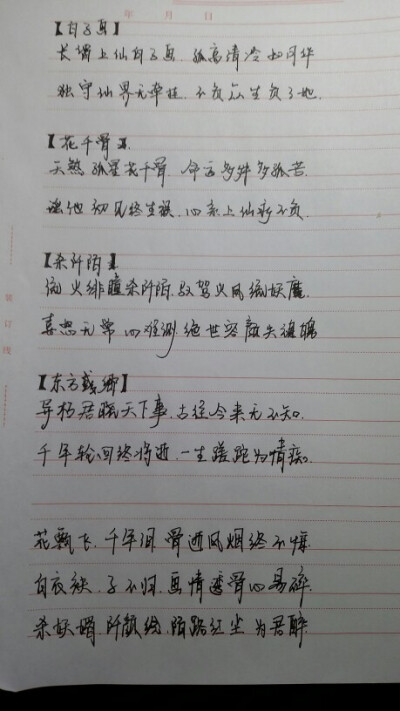 年 月 日
【白子画】
长留上仙白子画 孤高清冷如月华
独守仙界无牵挂 不负众生负了她
【花千骨】
天煞孤星花千骨 命运多舛多孤苦
遇他初见终生误 心系上仙永不负
【杀阡陌】
流火绯瞳杀阡陌 驭驾火凤统妖魔
喜怒无常心难测 绝世容颜失魂魄
【东方彧卿】
异朽君联天下事 古往今来无不知
千年轮回终将逝 一生蹉跎为情痴
花飘飞 千年泪 骨逝风烟终不悔
白衣袂 子不归 画情透骨心易碎
杀妖媚 阡颜绘 陌路红尘为君醉
装订线